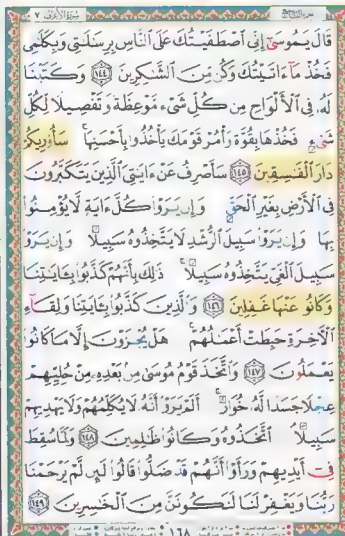 سُورَةُ الأَعْرَافِ ٧
قَالَ يَٰمُوسَىٰٓ إِنِّى ٱصْطَفَيْتُكَ عَلَى ٱلنَّاسِ بِرِسَٰلَٰتِى وَبِكَلَٰمِى
فَخُذْ مَآ ءَاتَيْتُكَ وَكُن مِّنَ ٱلشَّٰكِرِينَ ١٤٤ وَكَتَبْنَا
لَهُۥ فِى ٱلْأَلْوَاحِ مِن كُلِّ شَىْءٍ مَّوْعِظَةً وَتَفْصِيلًا لِّكُلِّ
شَىْءٍ فَخُذْهَا بِقُوَّةٍ وَأْمُرْ قَوْمَكَ يَأْخُذُوا۟ بِأَحْسَنِهَا سَأُو۟رِيكُمْ
دَارَ ٱلْفَٰسِقِينَ ١٤٥ سَأَصْرِفُ عَنْ ءَايَٰتِىَ ٱلَّذِينَ يَتَكَبَّرُونَ
فِى ٱلْأَرْضِ بِغَيْرِ ٱلْحَقِّ وَإِن يَرَوْا۟ كُلَّ ءَايَةٍ لَّا يُؤْمِنُوا۟
بِهَا وَإِن يَرَوْا۟ سَبِيلَ ٱلرُّشْدِ لَا يَتَّخِذُوهُ سَبِيلًا وَإِن يَرَوْا۟
سَبِيلَ ٱلْغَىِّ يَتَّخِذُوهُ سَبِيلًا ذَٰلِكَ بِأَنَّهُمْ كَذَّبُوا۟ بِـَٔايَٰتِنَا
وَكَانُوا۟ عَنْهَا غَٰفِلِينَ ١٤٦ وَٱلَّذِينَ كَذَّبُوا۟ بِـَٔايَٰتِنَا وَلِقَآءِ
ٱلْأَخِرَةِ حَبِطَتْ أَعْمَٰلُهُمْ هَلْ يُجْزَوْنَ إِلَّا مَا كَانُوا۟
يَعْمَلُونَ ١٤٧ وَٱتَّخَذَ قَوْمُ مُوسَىٰ مِنۢ بَعْدِهِۦ مِنْ حُلِيِّهِمْ
عِجْلًا جَسَدًا لَّهُۥ خُوَارٌ أَلَمْ يَرَوْا۟ أَنَّهُۥ لَا يُكَلِّمُهُمْ وَلَا يَهْدِيهِمْ
سَبِيلًا ٱتَّخَذُوهُ وَكَانُوا۟ ظَٰلِمِينَ ١٤٨ وَلَمَّا سُقِطَ
فِىٓ أَيْدِيهِمْ وَرَأَوْا۟ أَنَّهُمْ قَدْ ضَلُّوا۟ قَالُوا۟ لَئِن لَّمْ يَرْحَمْنَا
رَبُّنَا وَيَغْفِرْ لَنَا لَنَكُونَنَّ مِنَ ٱلْخَٰسِرِينَ ١٤٩
١٦٨